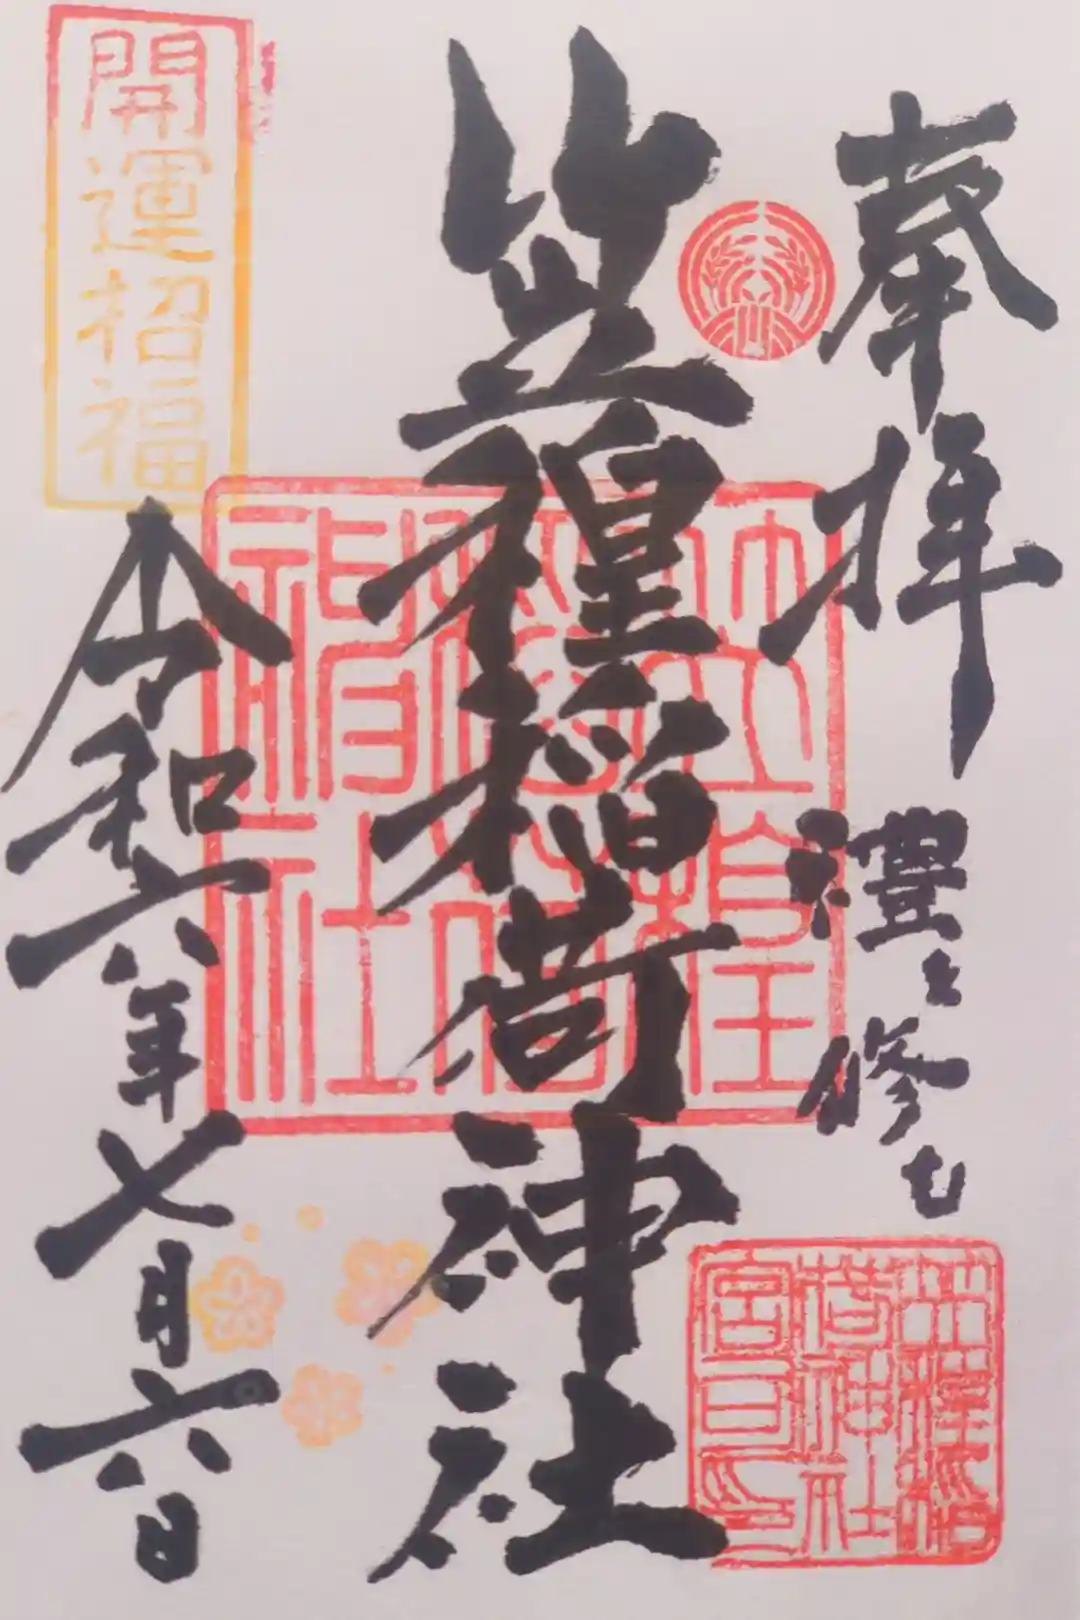 奉拝
禮を修む
笠䅣稲荷神社
令和六年七月六日
開運招福
笠䅣
稲荷
神社
笠䅣稲
荷神社
宮司印